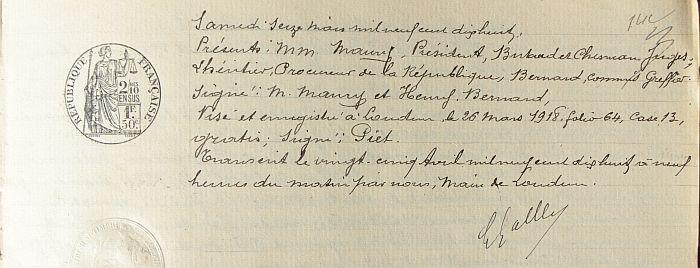 Samedi seize mars mil neuf cent dix huit.
Présents: MM. Maury, Président, Butaud et Chesneau Juges,
Lhéritier, Procureur de la République, Bernard, commis Greffier.
Signé: M. Maury et Henry Bernard.
Visé et enregistré à Loudun le 26 Mars 1918, folio 64, Case 13,
gratis; Signé: Piet.
Transcrit le vingt-cinq Avril mil neuf cent dix huit à neuf
heures du matin par nous, Maire de Loudun.
RÉPUBLIQUE FRANÇAISE
2/10
EN SUS
1F.
50c.